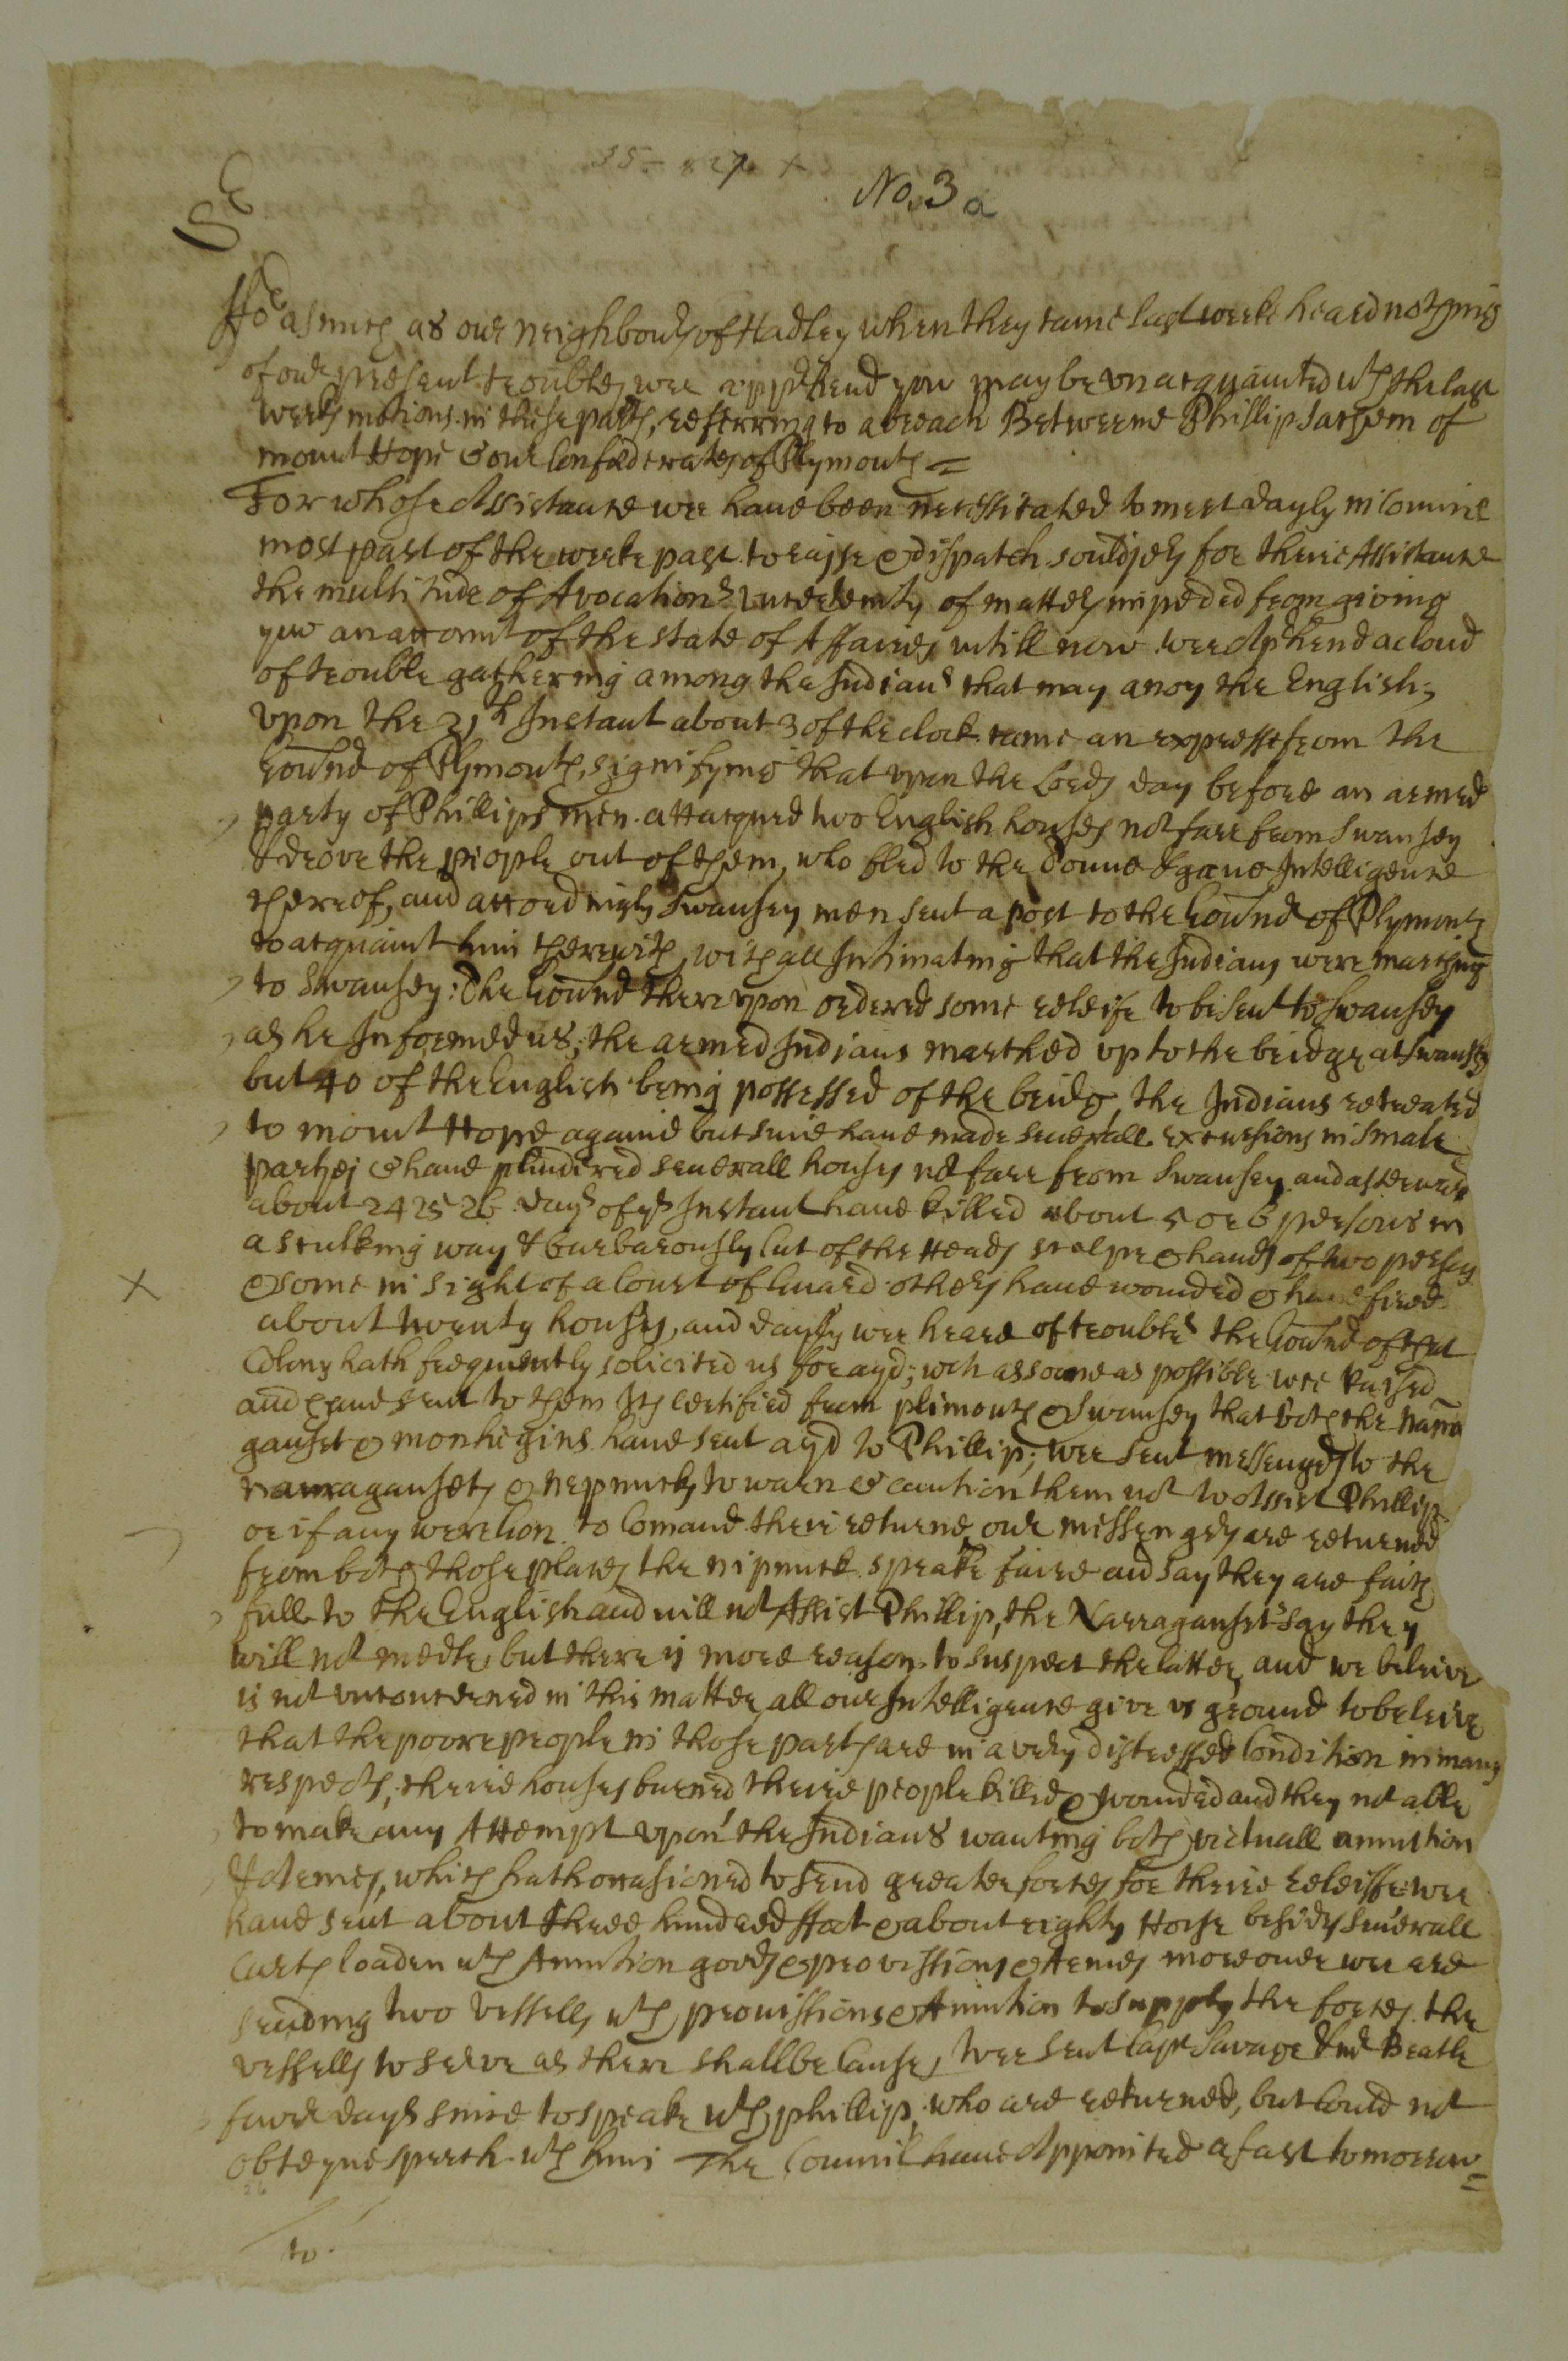 35 - 827 x
No. 3 a
Sr
Fforasmuch as our neighbours of Hadley when they came last weeke heard nothing
of our present troubles, wee apprhend you may be vnacquainted wth the last
weeks motions in these parts, referring to a breach Betweene Phillip Sachem of
mount Hope & our Confœderates of Plymouth =
For whose Assistance wee haue been necessitated to meet dayly in Councill
most part of the weeke past to raisse & dispatch souldjers for their Assistance
the multitude of Avocations & of matters impeded from giving
you an account of the state of Affaires vntill now. wee Apprhend a cloud
of trouble gathering among the Indians that may anoy the English;
vpon the 21th Instant about 3 of the clock came an expresse from the
Gouernor of Plymouth, signifying that vpon the Lords day before an armed
party of Phillips men attacqued two English houses not farr from Swansey
& drove the people out of them, who fled to the Towne & gaue Intelligence
thereof, and accordingly Swansey men sent a post to the Gouernor of Plymouth
to acquaint him therewith, withall Intimating that the Indians were marching
to Swansey: The Gouernor therevpon ordered some releife to be sent to Swansey
as he Informed us; the armed Indians marched vp to the bridge at Swansey
but 40 of the English being possessed of the bridg, the Indians retreated
to mount Hope againe but since haue made seuerall excursions in smale
partyes & haue plundered seuerall houses not farr from Swansey. and afterward
about 24 25 26 days of ys Instant haue killed about 5 or 6 persons in
a sculking way & barbarously Cut of the Heads scalpe & hands of two persons
& some in sight of a Court of Guard others haue wounded & haue fired
about twenty houses, and dayly wee heare of troubles the Gouernor of that
Colony hath frequently solicited us for ayd; wch as soone as possible wee Raised
and haue sent to them Its certified from plimouth & Swansey that both the Narra
ganset & monhegins haue sent ayd to Phillip; wee sent messengers to the
narraganssets & nepmucks to warn & caution them not to Assist Phillip
or if any were gon to Comand their returne our messengers are returned
from both those places the nipmuck speake faire and say they are faith
full to the English and will not Assist Phillip, the Narragansets say they
will not medle, but there is more reason to suspect the latter, and we beleive
is not vnconcerned in this matter, all our Intelligence give vs ground to beleive
that the poore people in those parts are in a very distressed Condition in many
respects, theire houses burned theire people killed & wounded and they not able
to make any Attempt vpon the Indians wanting both victuall amunition
& Armes, which hath occasioned to send greater forces for theire releiffe: wee
haue sent about three hundred ffoot & about eighty Horse besides seuerall
Carts loaden wth Amunition goods & provissions & Armes moreouer wee are
sending two vessells wth prouissions & Amunition to supply the forces. the
vessells to serve as there shall be Cause, wee sent Capt Savage & mr Bratle
fower days since to speake wth phillip, who are returned, but Could not
obteyne speech wth him The Councill haue Apponited a fast to morrow =
to